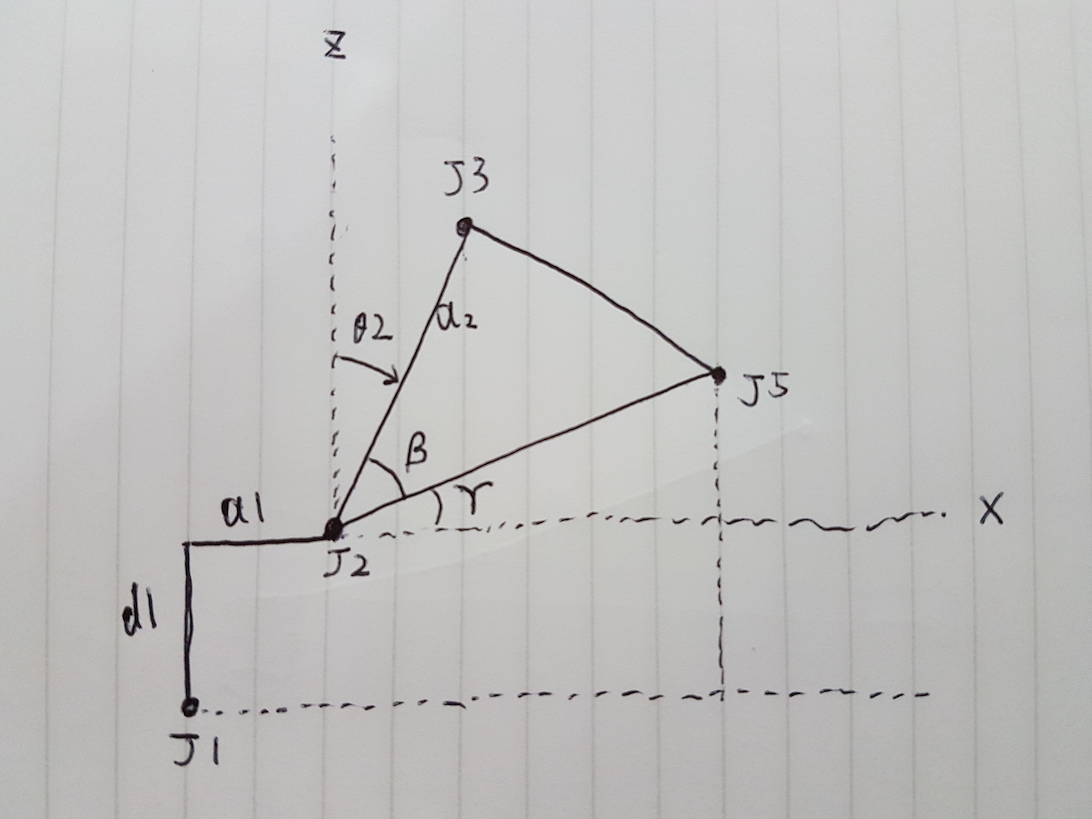 Z
J3
θ2
a2
J5
β
γ
a1
X
J2
d1
J1